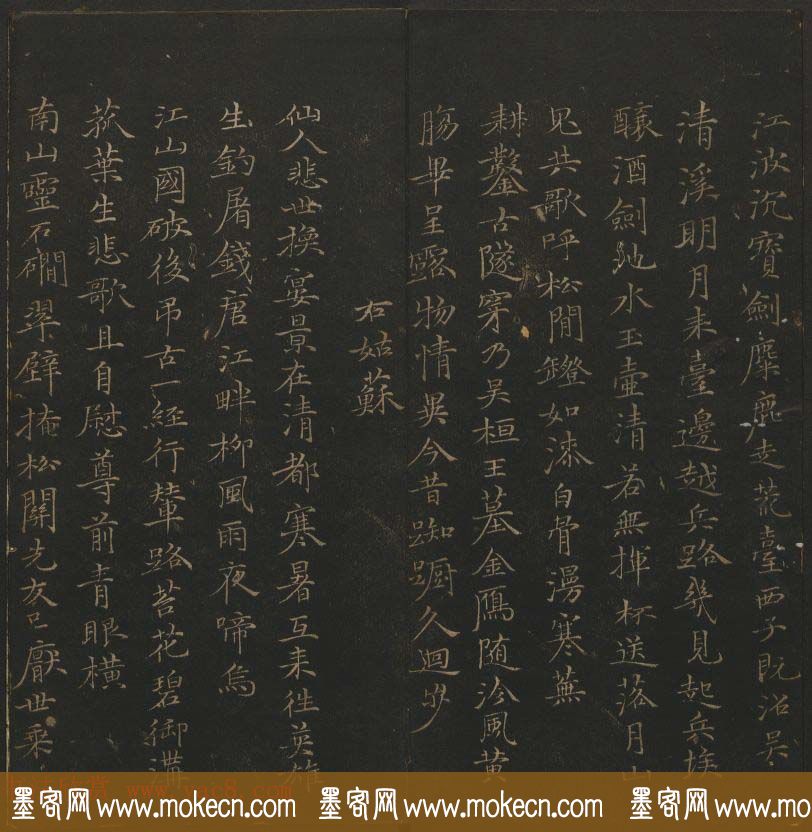 江波沉寶劍麋鹿走荒臺西子既沼吳
清溪明月来臺邊越兵路幾見起兵埃
釀酒劍池水玉壺清若無揮杯送落月山
鬼共歌呼松間鐙如漆白骨漫寒蕪
耕鑿古隧穿乃吳桓王墓金鴈随泠風黄
腸畢呈露物情異今昔踟蹰久迴步
右姑蘇
仙人悲世換宴景在清都寒暑互来徃英雄
生釣屠錢唐江畔柳風雨夜啼烏
江山國破後弔古一經行輦路苔花碧御溝
菰葉生悲歌且自慰尊前青眼橫
南山靈石磵翠壁掩松關先友已厭世乘
墨客网 www.mokecn.com 墨客网 www.mokecn.com 墨客网 www.mokecn.com